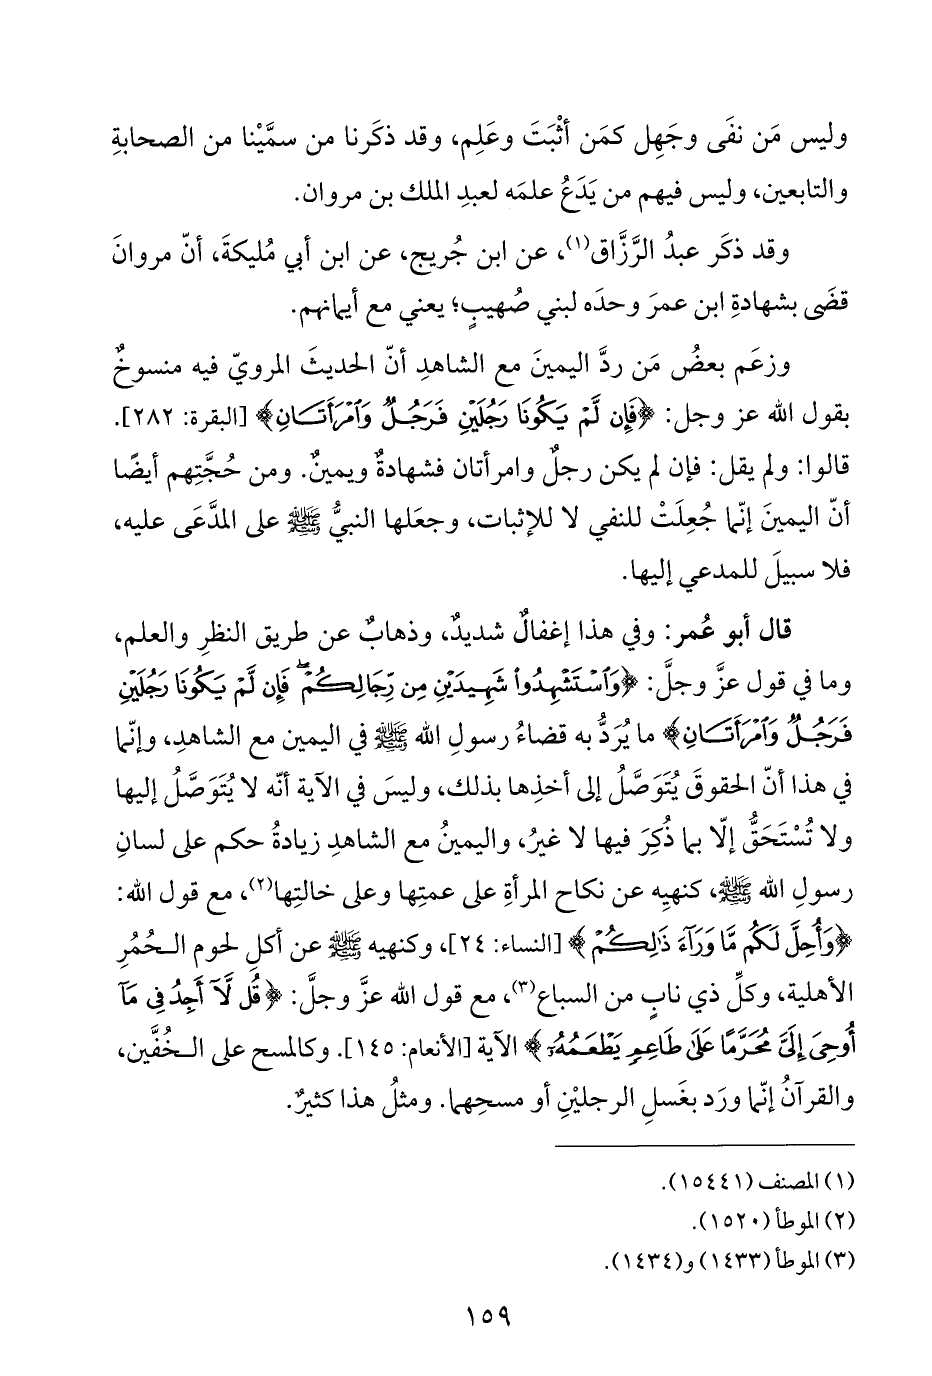 وليس مَن نفَى وجَهِل كمَن أثْبَتَ وعَلِم، وقد ذكَرنا من سمَّيْنا من الصحابةِ
والتابعين، وليس فيهم من يَدَعُ علمَه لعبدِ الملك بن مروان.
وقد ذكَر عبدُ الرَّزَّاق(١)، عن ابن جُريج، عن ابن أبي مُليكةَ، أنّ مروانَ
قضَى بشهادةِ ابن عمرَ وحدَه لبني صُهيبٍ؛ يعني مع أيمانهم.
وزعَم بعضُ مَن ردَّ اليمينَ مع الشاهدِ أنّ الحديثَ المرويّ فيه منسوخٌ
بقول الله عز وجل: ﴿فَإِن لَّمْ يَكُونَا رَجُلَيْنِ فَرَجُلٌ وَٱمْرَأَتَانِ﴾ [البقرة: ٢٨٢].
قالوا: ولم يقل: فإن لم يكن رجلٌ وامرأتان فشهادةٌ ويمينٌ. ومن حُجَّتِهم أيضًا
أنّ اليمينَ إنّما جُعِلَتْ للنفي لا للإثبات، وجعَلها النبيُّ ﷺ على المدَّعَى عليه،
فلا سبيلَ للمدعي إليها.
قال أبو عُمر: وفي هذا إغفالٌ شديدٌ، وذهابٌ عن طريق النظرِ والعلم،
وما في قول عزَّ وجلَّ: ﴿وَٱسْتَشْهِدُوا۟ شَهِيدَيْنِ مِن رِّجَالِكُمْ ۖ فَإِن لَّمْ يَكُونَا رَجُلَيْنِ
فَرَجُلٌ وَٱمْرَأَتَانِ﴾ ما يُرَدُّ به قضاءُ رسولِ الله ﷺ في اليمين مع الشاهدِ، وإنّما
في هذا أنّ الحقوقَ يُتَوَصَّلُ إلى أخذِها بذلك، وليسَ في الآية أنّه لا يُتَوَصَّلُ إليها
ولا تُسْتَحَقُّ إلّا بما ذُكِرَ فيها لا غيرُ، واليمينُ مع الشاهدِ زيادةُ حكم على لسانِ
رسولِ الله ﷺ، كنهيِه عن نكاح المرأةِ على عمتِها وعلى خالتِها(٢)، مع قول الله:
﴿وَأُحِلَّ لَكُم مَّا وَرَآءَ ذَٰلِكُمْ﴾ [النساء: ٢٤]، وكنهيه ﷺ عن أكلِ لحوم الـحُمُرِ
الأهلية، وكلِّ ذي نابٍ من السباع(٣)، مع قول الله عزَّ وجلَّ: ﴿قُل لَّآ أَجِدُ فِى مَآ
أُوحِىَ إِلَىَّ مُحَرَّمًا عَلَىٰ طَاعِمٍ يَطْعَمُهُۥٓ﴾ الآية [الأنعام: ١٤٥]. وكالمسح على الـخُفَّين،
والقرآنُ إنّما ورَد بغَسلِ الرجليْنِ أو مسحِهما. ومثلُ هذا كثيرٌ.
(١) المصنف (١٥٤٤١).
(٢) الموطأ (١٥٢٠).
(٣) الموطأ (١٤٣٣) و(١٤٣٤).
١٥٩